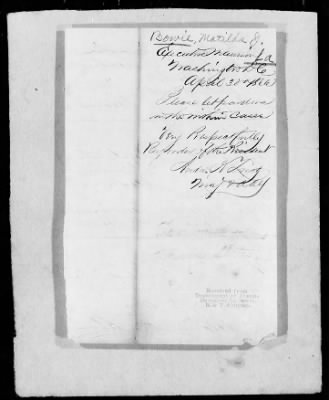 Bowie, Matilda J.
La
Executive Mansion
Washington D.C.
April 20th 1866
Please let pardons
in the within cases
Very Respectfully
By order of the President
Andrew K. Long
Received from
Department of Justice